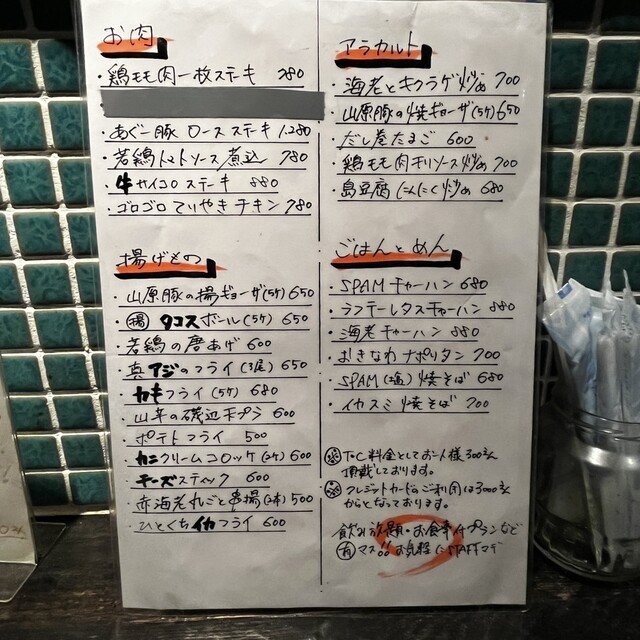 お肉
・鶏モモ肉一枚ステーキ 780
・あぐー豚 ロースステーキ 1,280
・若鶏トマトソース煮込 780
・牛サイコロステーキ 880
・ゴロゴロてりやきチキン 780
揚げもの
・山原豚の揚ギョーザ(5ケ) 650
・(揚)タコスボール(5ケ) 650
・若鶏の唐あげ 600
・真アジのフライ(3尾) 650
・カキフライ(5ケ) 680
・山芋の磯辺天プラ 600
・ポテトフライ 500
・カニクリームコロッケ(2ケ) 600
・チーズスティック 600
・赤海老丸ごと串揚(2本) 500
・ひとくちイカフライ 600
アラカルト
・海老とキクラゲ炒め 700
・山原豚の焼ギョーザ(5ケ) 650
・だし巻たまご 600
・鶏モモ肉チリソース炒め 700
・島豆腐にんにく炒め 680
ごはんとめん
・SPAMチャーハン 680
・ラフテーレタスチャーハン 880
・海老チャーハン 880
・おきなわナポリタン 700
・SPAM(塩)焼そば 680
・イカスミ焼そば 700
※ T・C料金としてお一人様300円
頂戴しております。
※ クレジットカードのご利用は3000円
からとなっております。
飲み放題・お食事付プランなど
(有)マス!! お気軽にSTAFFマデ